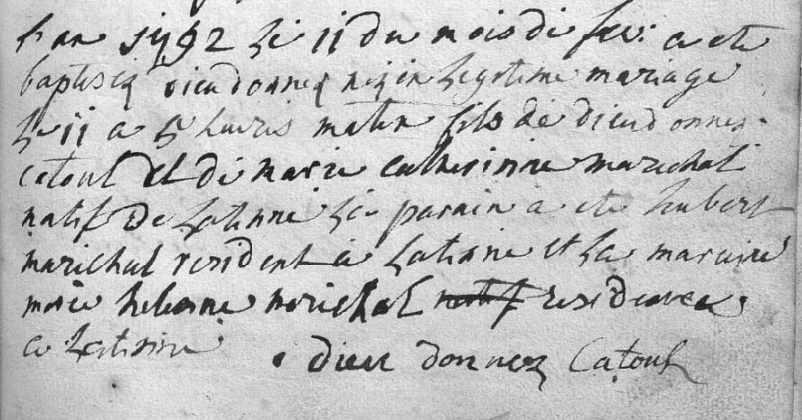 L'an 1792 Le 11 du mois di fev: a ete
baptiseij dieudonneij neij in Legitime mariage
Le 11 a 5 heuris matin fils de dieud onnez
catoul et di marie catherinne marichal
natif De Latinne Le parain a ete hubert
marichal resident a Latinne et La maraine
marie helenne marichal natif
a Latinne
dieu donnez Catoul